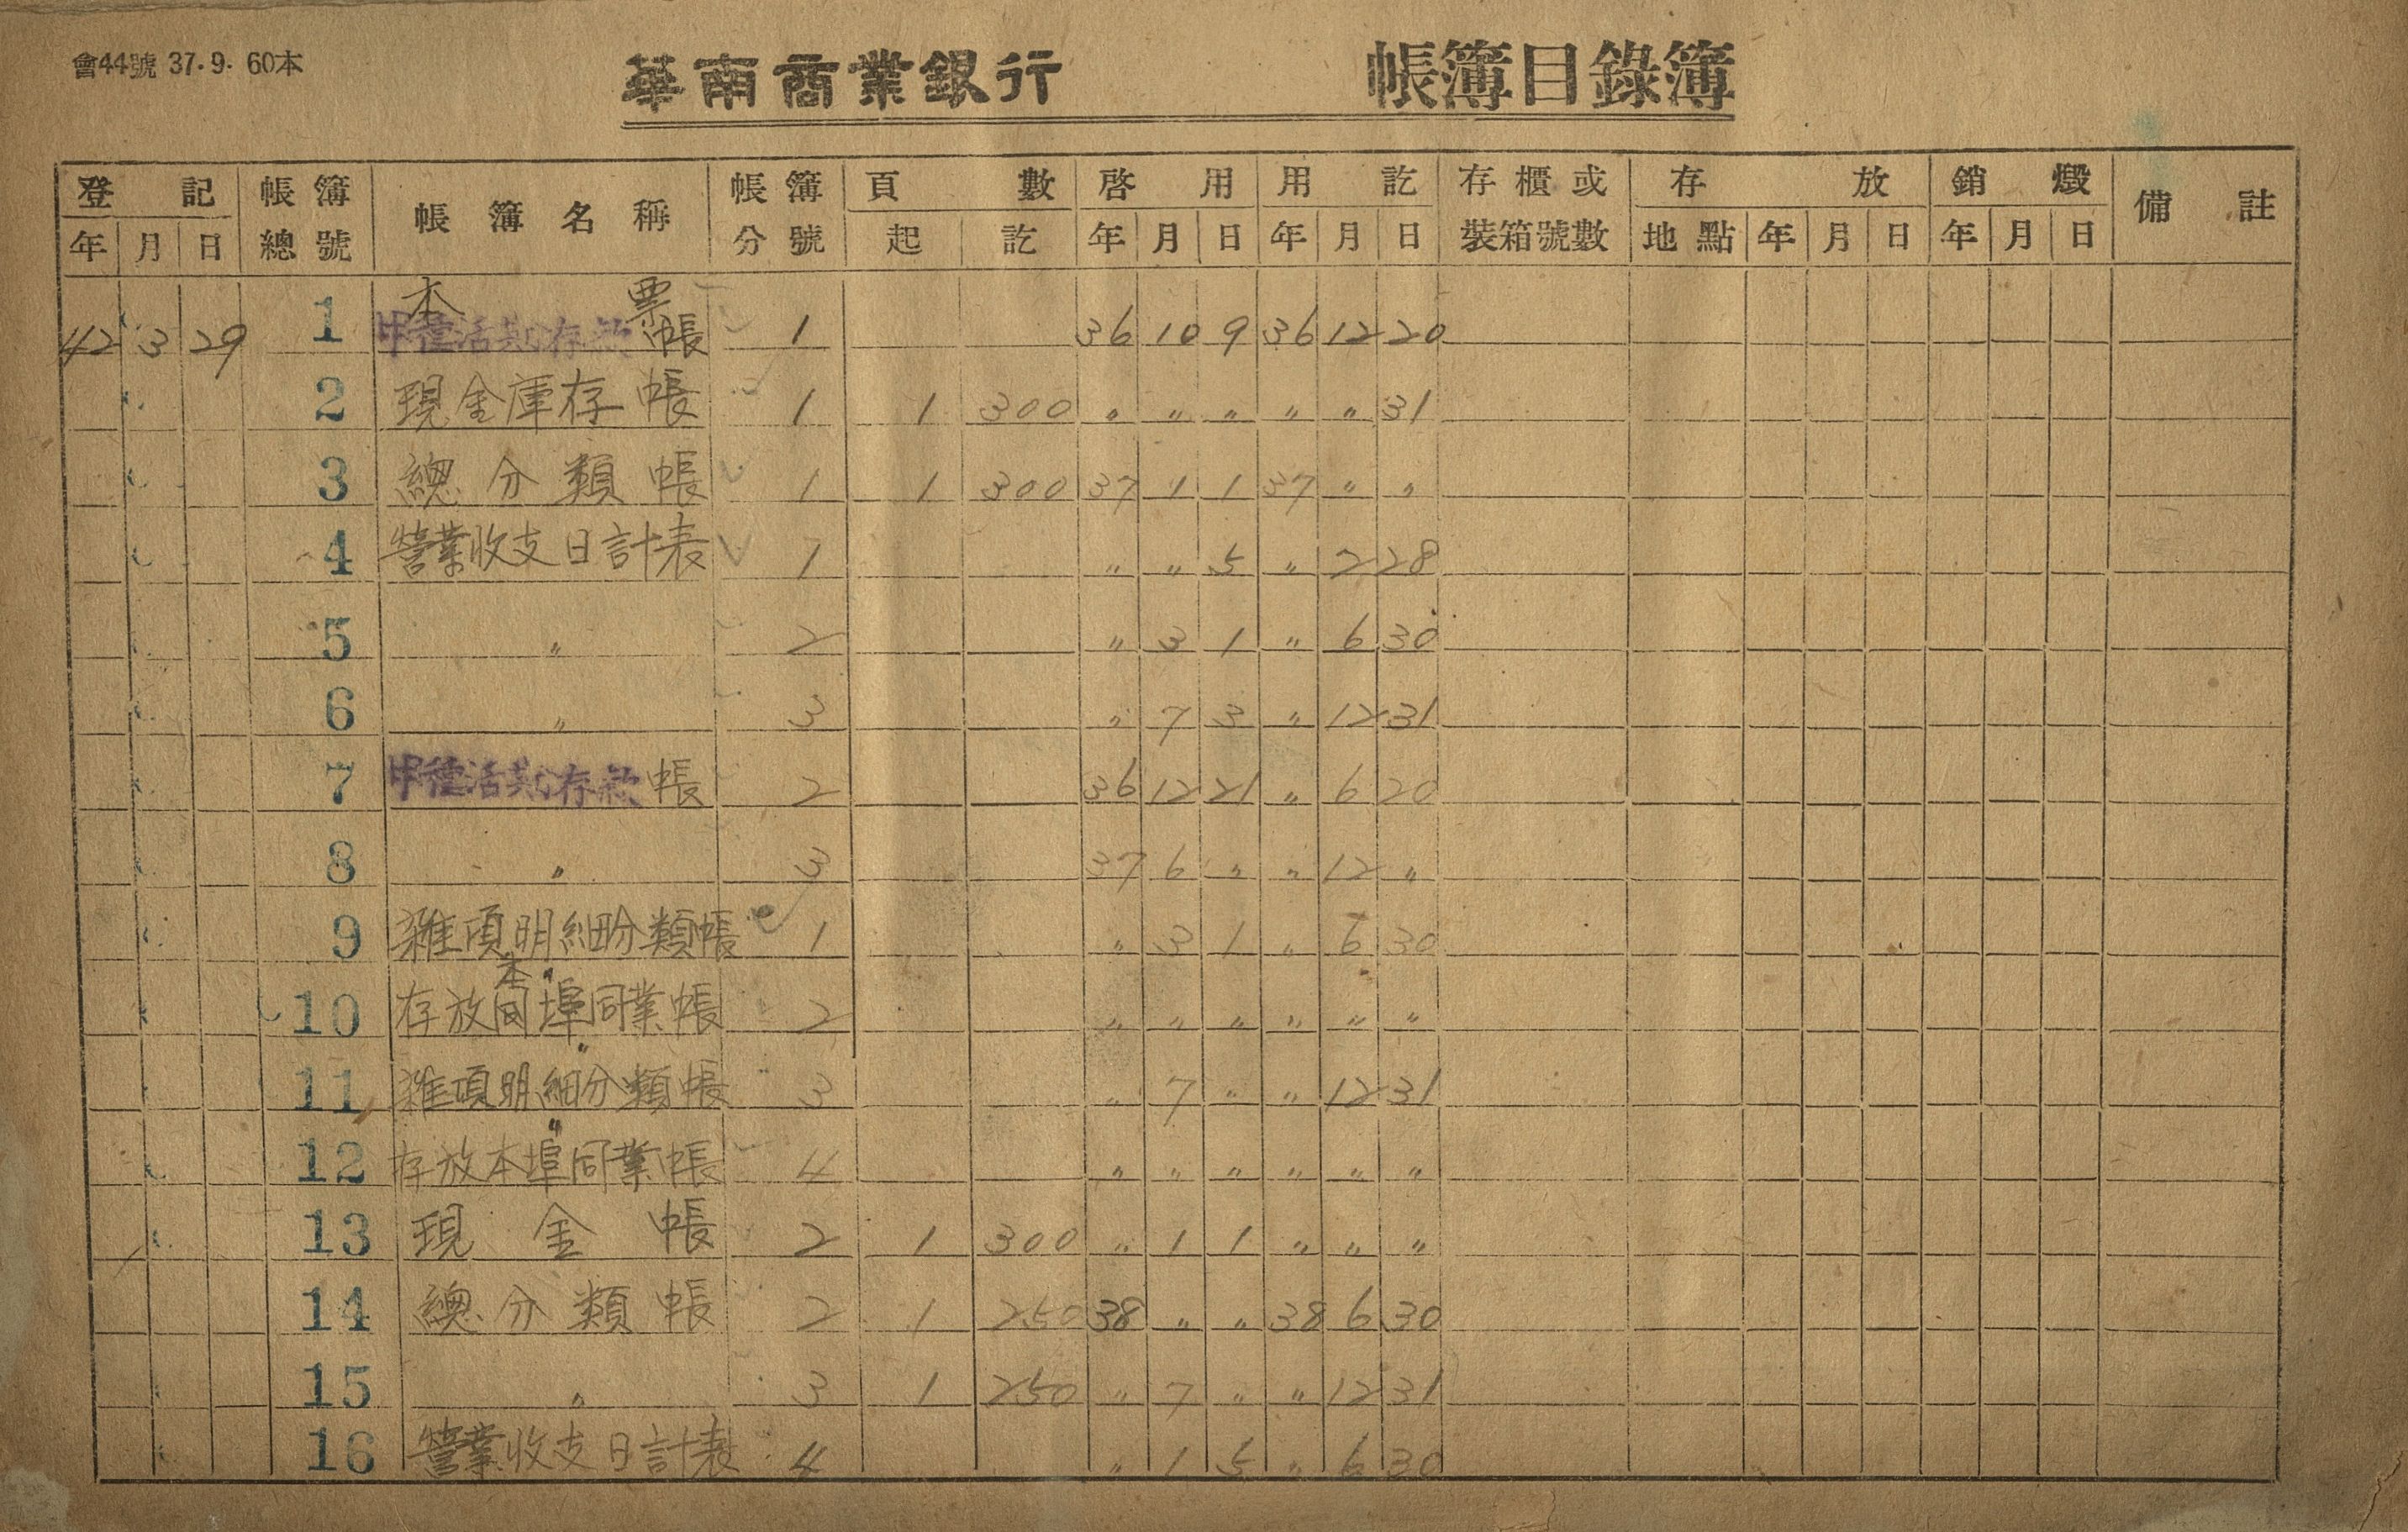 會44號 37.9. 60本
華南商業銀行 帳簿目錄簿
登記 帳簿 帳簿名稱 帳簿 頁數 啓用 用訖 存櫃或 存放 銷燬 備註
年 月 日 總號 分號 起 訖 年 月 日 年 月 日 裝箱號數 地點 年 月 日 年 月 日
本票
42 3 29 1 甲種活期存款帳 1 36 10 9 36 12 20
2 現金庫存帳 1 1 300 〃 〃 〃 〃 〃 31
3 總分類帳 1 1 300 37 1 1 37 〃 〃
4 營業收支日計表 1 〃 〃 5 〃 2 28
5 〃 2 〃 3 1 〃 6 30
6 〃 3 〃 7 3 〃 12 31
7 甲種活期存款帳 2 36 12 21 〃 6 20
8 〃 3 37 6 〃 〃 12 〃
9 雜項明細分類帳 1 〃 3 1 〃 6 30
本 〃
10 存放同埠同業帳 2 〃 〃 〃 〃 〃 〃
〃
11 雜項明細分類帳 3 〃 7 〃 〃 12 31
〃
12 存放本埠同業帳 4 〃 〃 〃 〃 〃 〃
13 現金帳 2 1 300 〃 1 1 〃 〃 〃
14 總分類帳 2 1 250 38 〃 〃 38 6 30
15 〃 3 1 250 〃 7 〃 〃 12 31
16 營業收支日計表 4 〃 1 5 〃 6 30